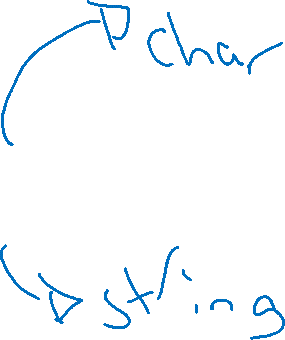 char
string